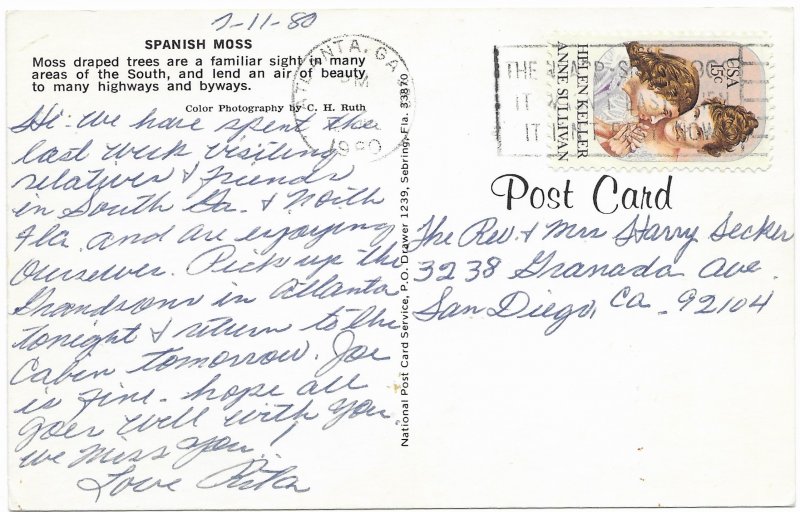 7-11-80
SPANISH MOSS
Moss draped trees are a familiar sight in many
areas of the South, and lend an air of beauty
to many highways and byways.
Color Photography by C. H. Ruth
Hi - We have spent the
last week visiting
relatives & friends
in South Ga. & North
Fla. and are enjoying
ourselves. Pick up the
Grandsons in Atlanta
tonight & return to the
Cabin tomorrow. Joe
is fine - hope all
goes well with you.
we miss you!
Love Rita
National Post Card Service, P.O. Drawer 1239, Sebring, Fla. 33870
ATLANTA, GA
PM
1980
THE
IT
IT
HELEN KELLER
ANNE SULLIVAN
USA
15c
Post Card
The Rev. & Mrs Harry Secker
3238 Granada Ave.
San Diego, Ca - 92104